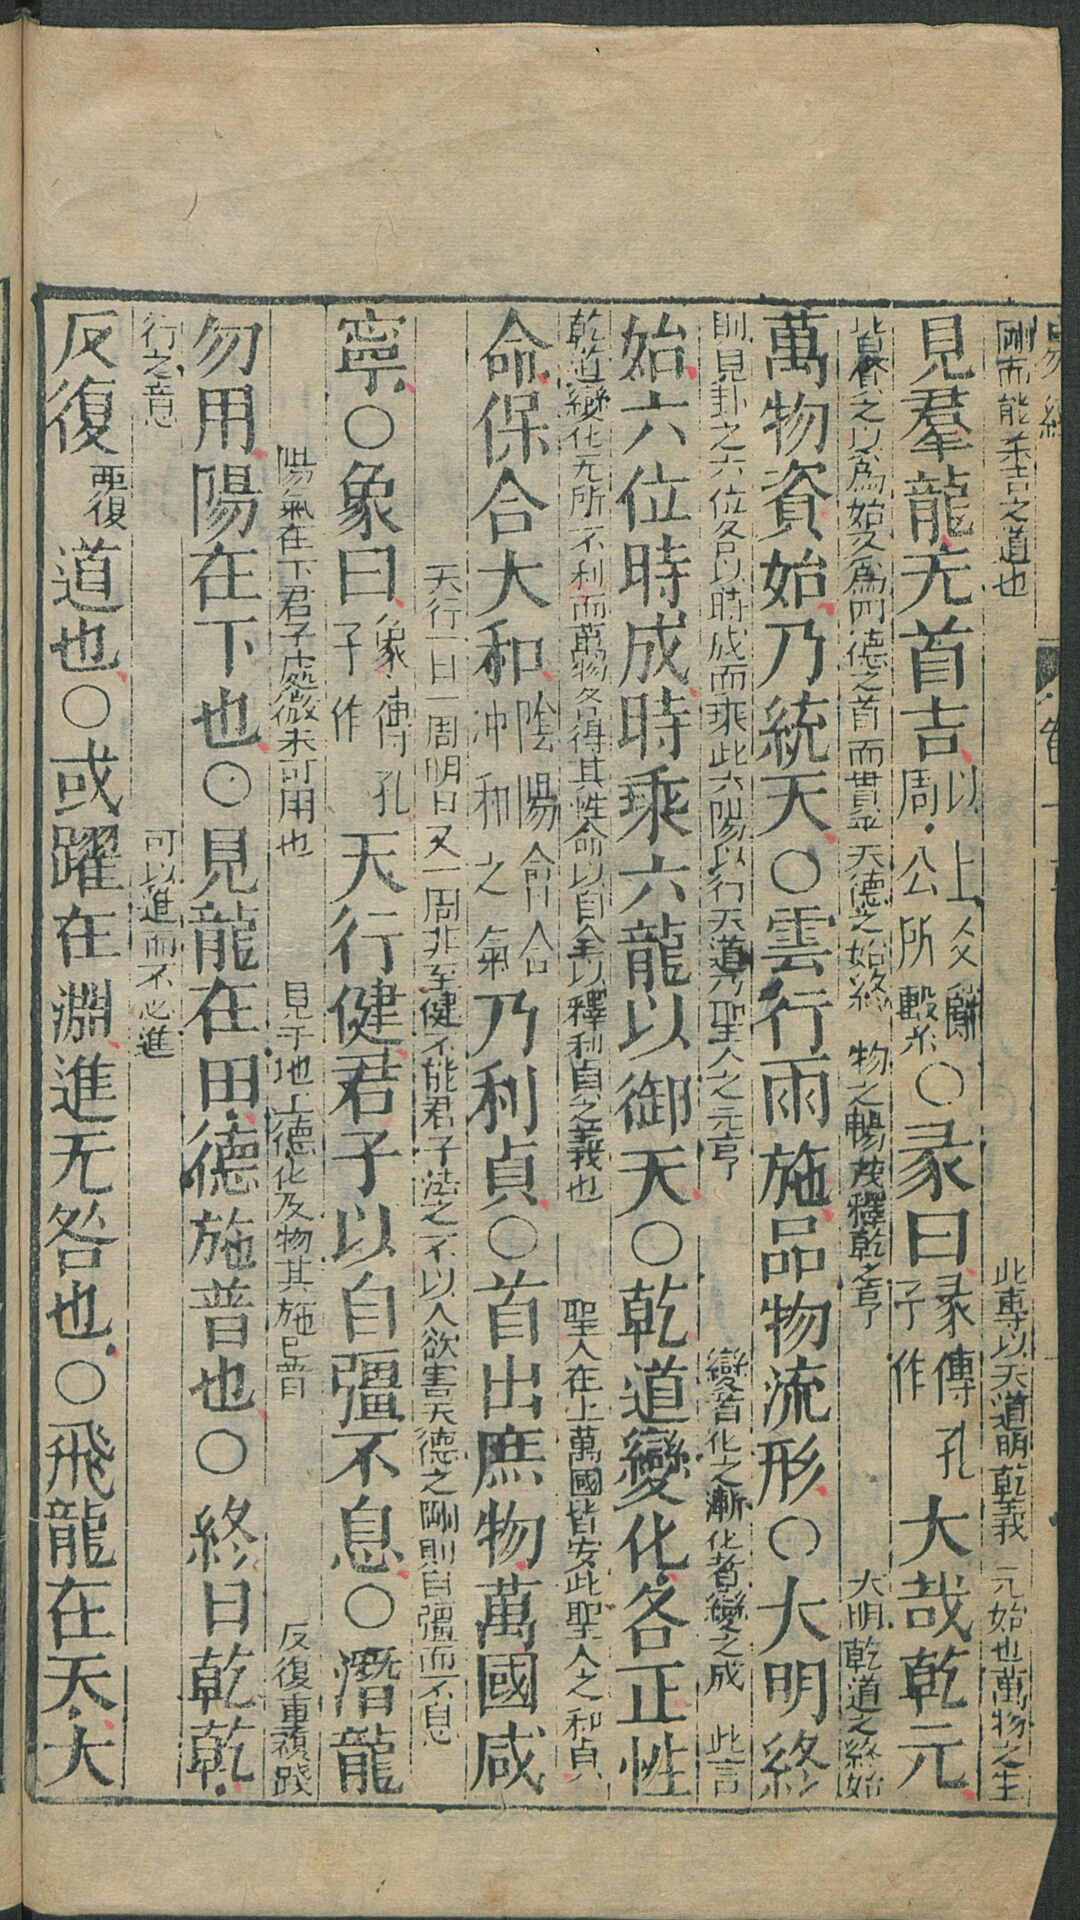 易經
剛而能柔吉之道也 此專以天道明乾義 元始也萬物之生
見羣龍无首吉以上爻辭周公所繫○彖曰彖傳孔子作大哉乾元
皆資之以爲始又爲四德之首而貫乎天德之始終 物之暢茂釋乾之亨 大明乾道之終始
萬物資始乃統天○雲行雨施品物流形○大明終
則見卦之六位各以時成而乘此六陽以行天道乃聖人之元亨 變者化之漸化者變之成 此言
始六位時成時乘六龍以御天○乾道變化各正性
乾道變化无所不利而萬物各得其性命以自全以釋利貞之義也 聖人在上萬國皆安此聖人之利貞
命保合大和陰陽會合冲和之氣乃利貞○首出庶物萬國咸
天行一日一周明日又一周非至健不能君子法之不以人欲害天德之剛則自彊而不息
寧○象曰象傳孔子作天行健君子以自彊不息○潛龍
陽氣在下君子處微未可用也 見于地上德化及物其施已普 反復重複踐
勿用陽在下也○見龍在田德施普也○終日乾乾
行之意 可以進而不必進
反復覆道也○或躍在淵進无咎也○飛龍在天大